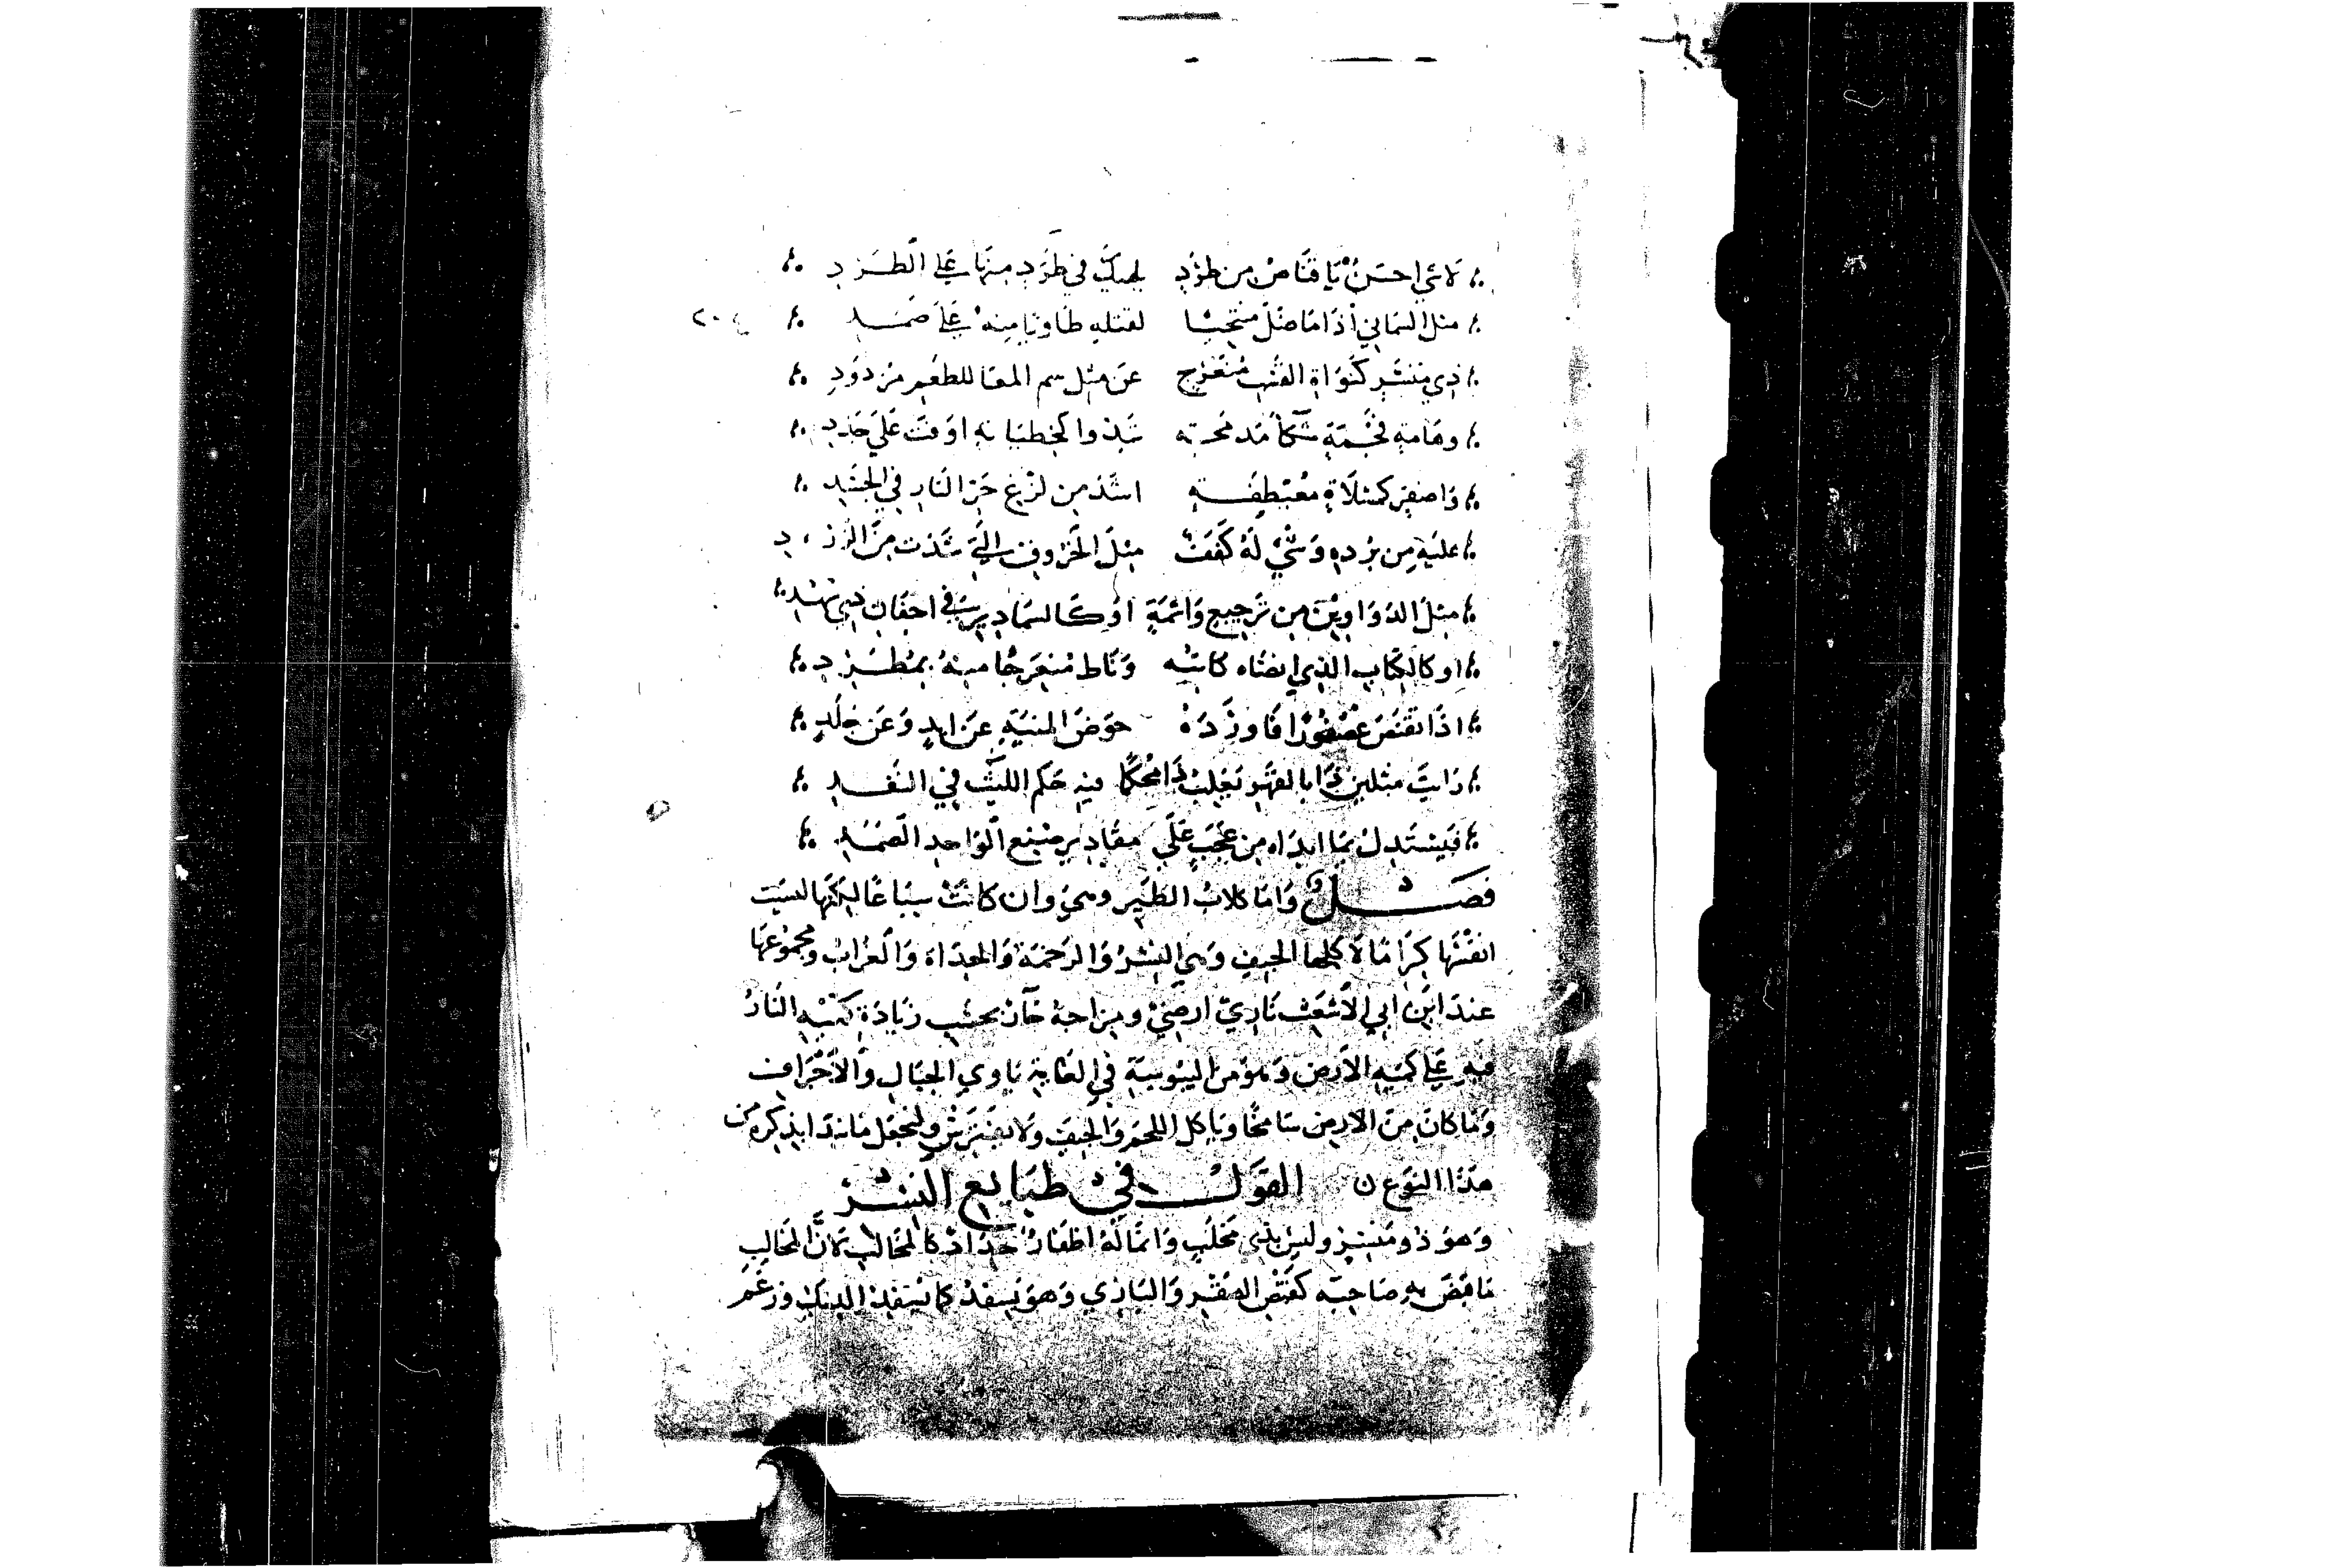 لا شي احسن يا قناص من طرد يلهيك في طرد منها على الطرد
مثل اليماني اذا ما ضل منتحيا لقتله طاويا منه على ضمد
ذي منسر كنواة القسب منعرج عن مثل سم المعا للطعم مزدرد
وهامة فخمة
واصفر اشد من لزع حر النار في الجسد
عليه من برده وشي له كففت مثل الحروف التي شذت من
مثل الدواوين من ترجيع واشمة او كالسمادير في اجفان ذي
او كالكتاب الذي انضاه كاتبه وناط منعرجا منه بمطرد
اذا تقنص عصفورا فاورده حوض المنية عن ايد وعن جلد
رايت مثلين ذا بالقهر تغلب ذا محكما فيه حكم الليث في النقد
فيستدل بما ابداه من عجب على مقادير صنع الواحد الصمد
فصل واما كلاب الطير وهي وان كانت سباعا لكنها ليست
انفسها كراما لاكلها الجيف وهي النسر والرخمة والحداة والغراب ومجموعها
عند ابن ابي الاشعث ناري ارضي ومزاجه حار بحسب زيادة كمية النار
فيه على كمية الارض وهو من اليبوسة في الغاية ياوي الجبال والاجراف
وما كان من الارض شامخا وياكل اللحم والجيف ولا يفترش ولنجعل ما نبدا بذكره من
هذا النوع القول في طبايع النسر
وهو ذو منسر وليس بذي مخلب وانما له اظفار حداد كالمخالب لان المخالب
ما قبض به صاحبه كقبض الصقر والبازي وهو يسفد كما يسفد الديك وزعم
٢٠٤